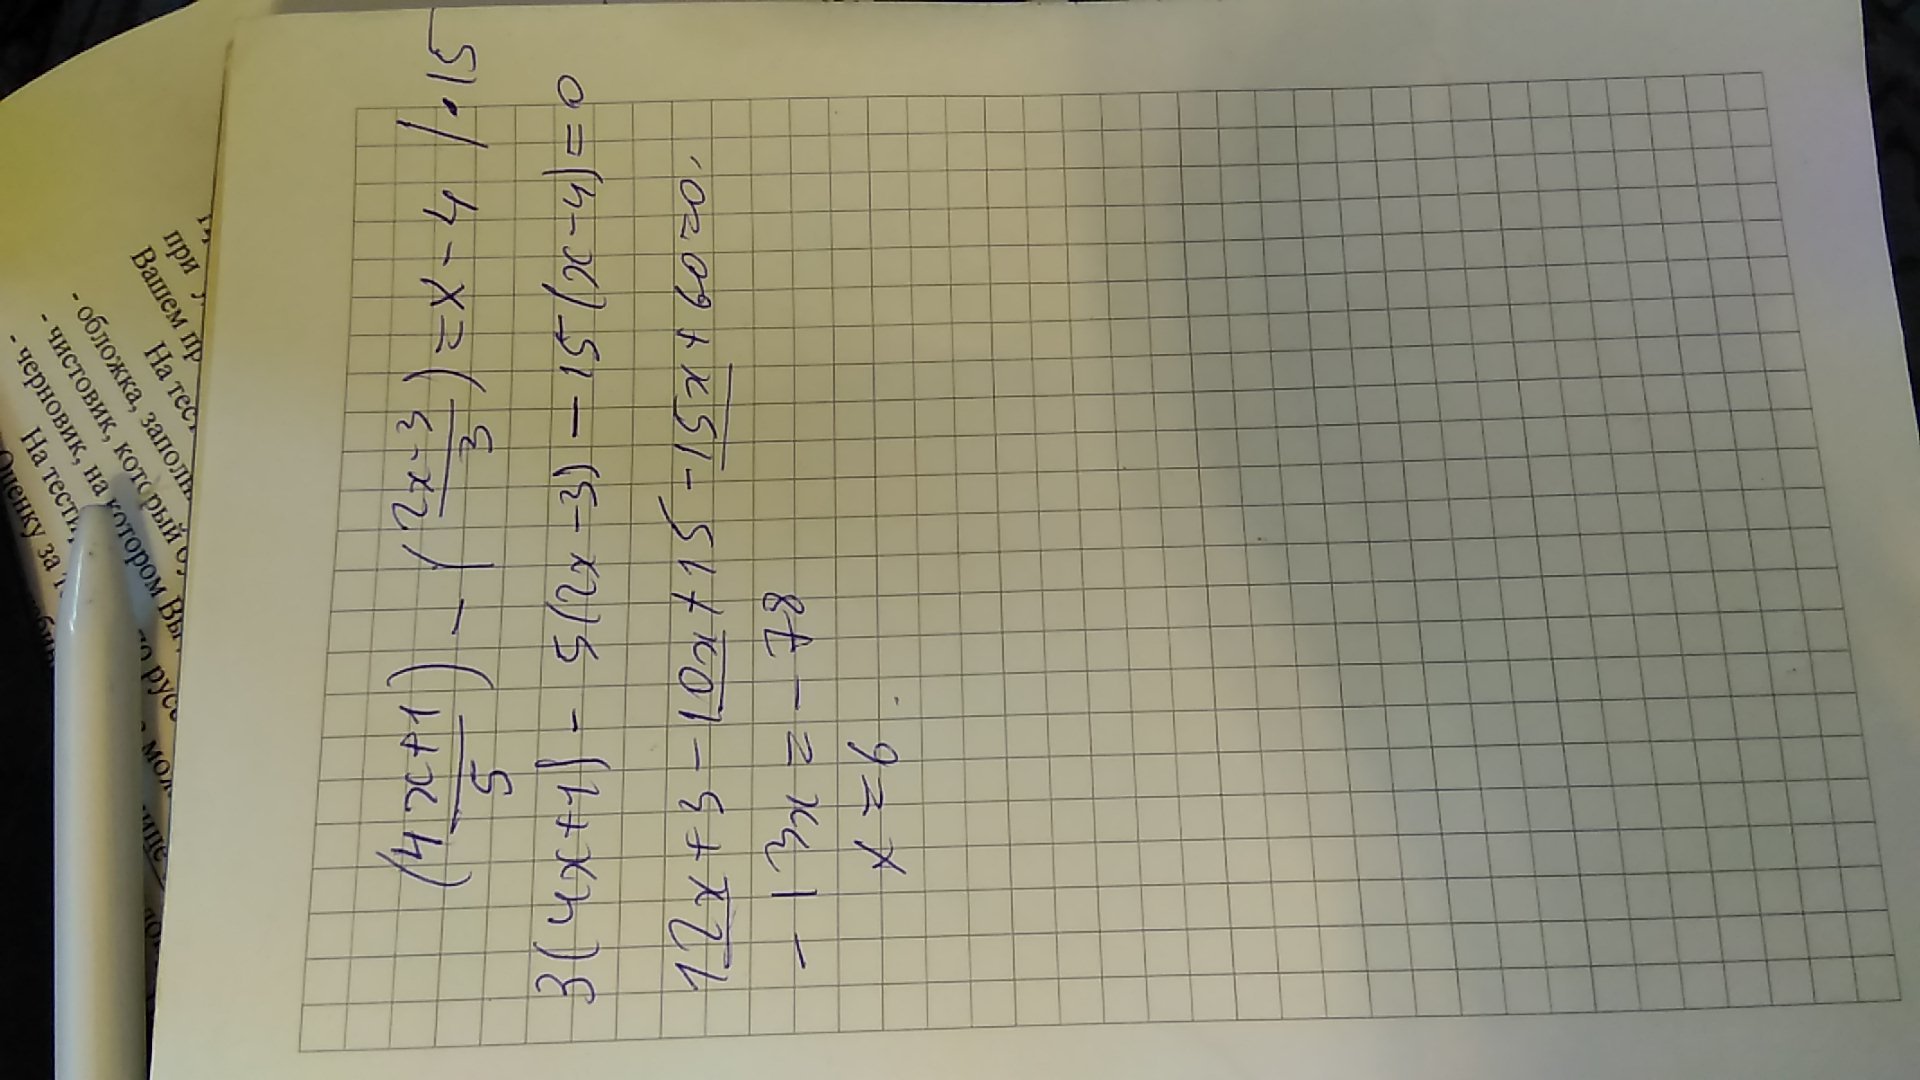 (4x+1)/5 - (2x-3)/3 = x - 4 /·15
3(4x+1) - 5(2x-3) - 15(x-4)=0
12x+3-10x+15-15x+60=0.
-13x = -78
x = 6.
при
Вашем пр
На тес
- обложка, заполн
- чистовик, который
- черновик, на котором Вы
На тести
Оценку за